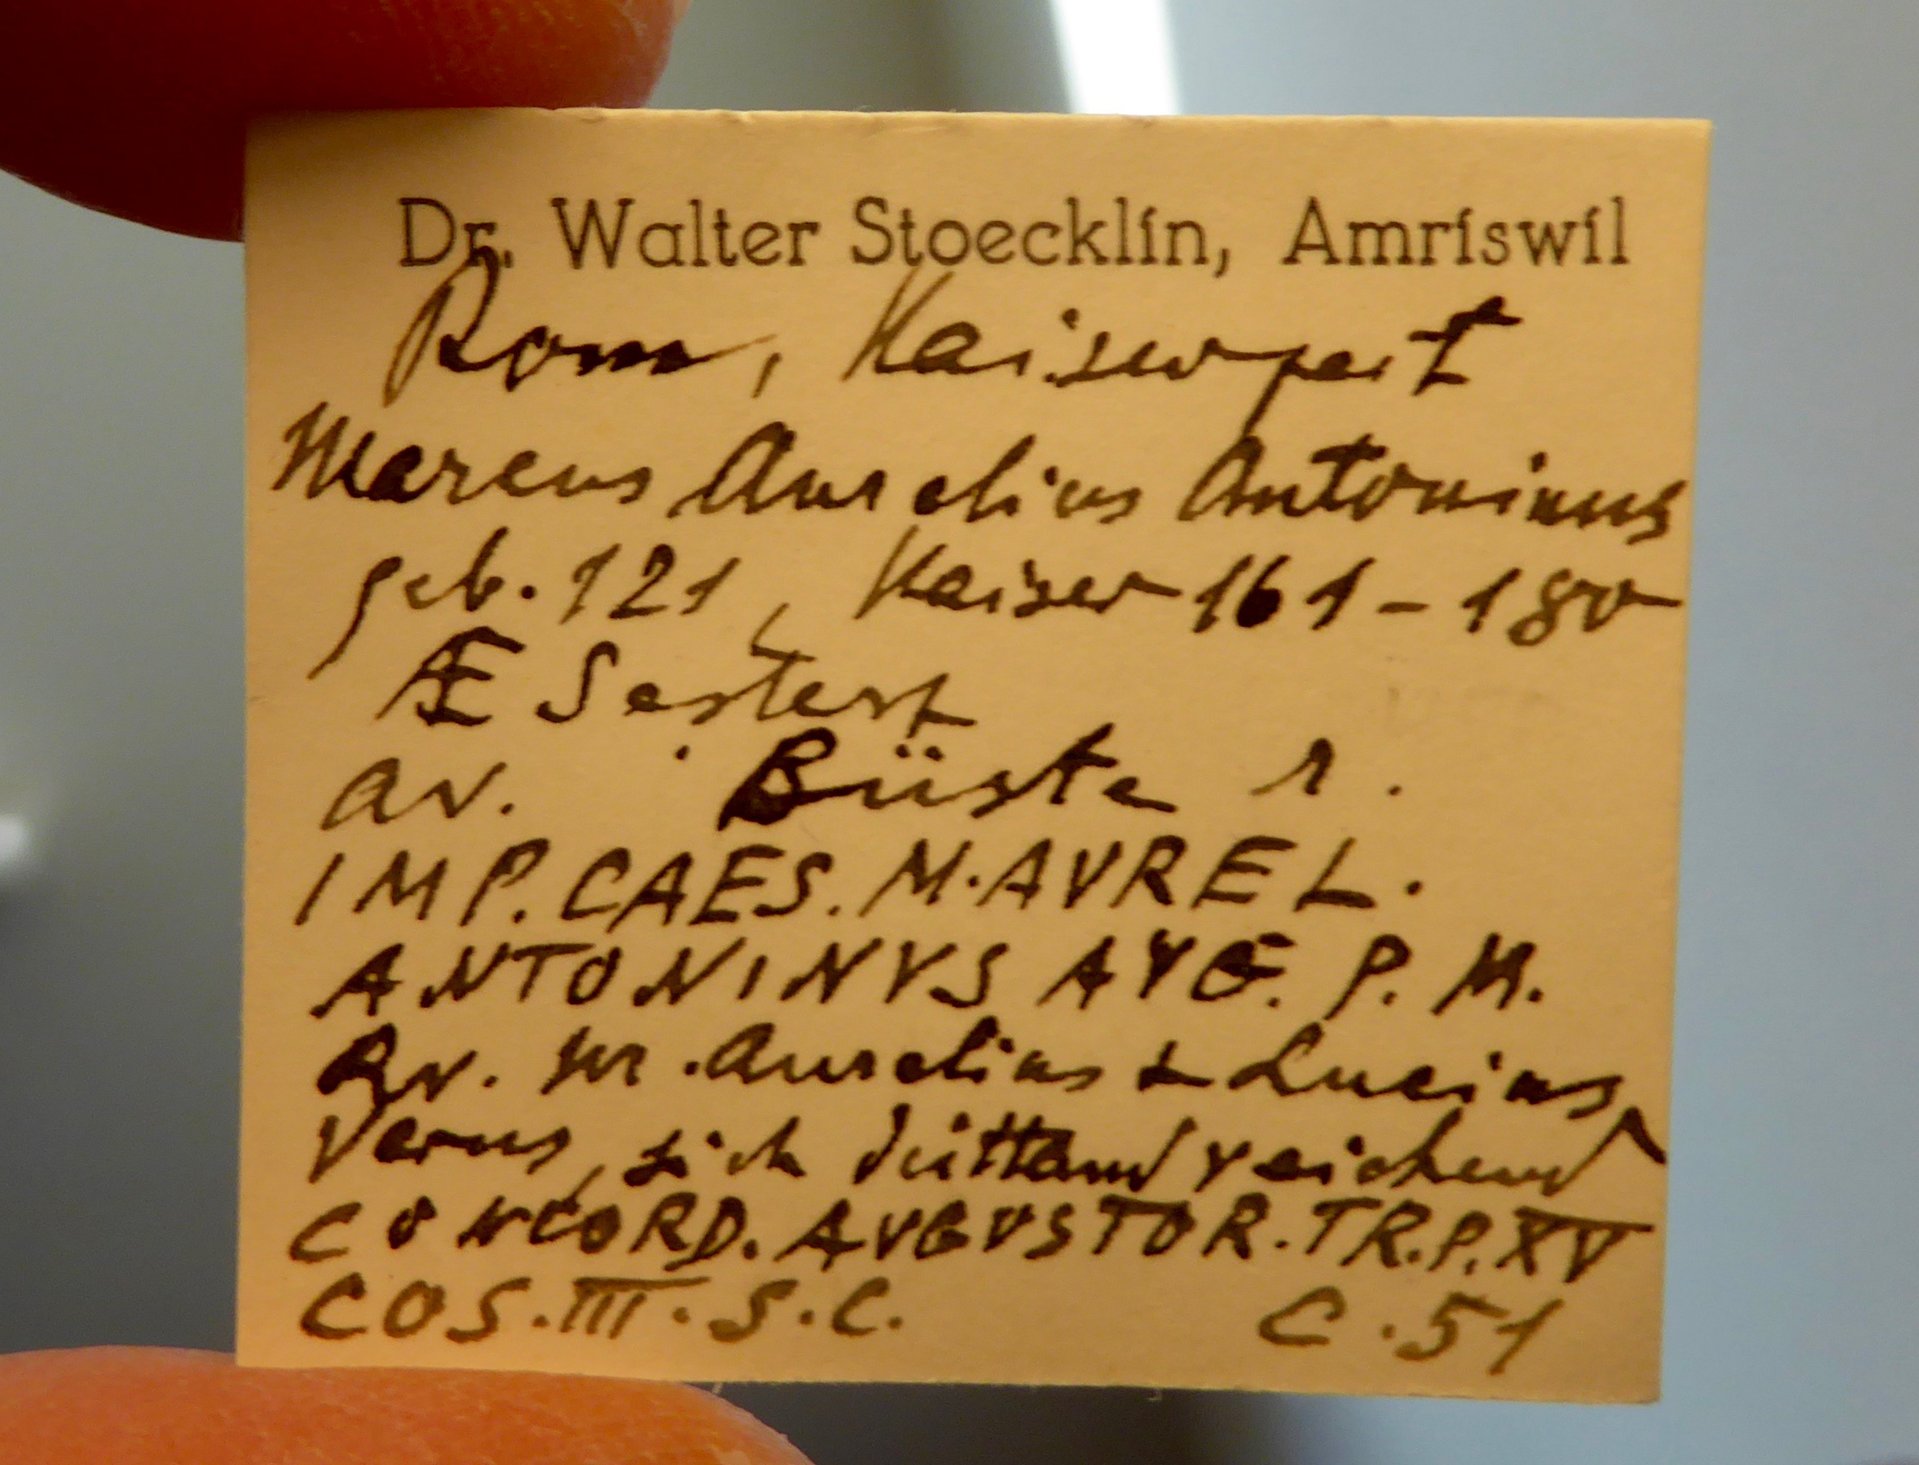 Dr. Walter Stoecklin, Amriswil
Rom, Kaiserzeit
Marcus Aurelius Antoninus
geb. 121, Kaiser 161-180
Æ Sesterz
Av. Büste r.
IMP. CAES. M. AVREL.
ANTONINVS AVG. P. M.
Rv. M. Aurelius & Lucius
Verus, sich die Hand reichend
CONCORD. AVGVSTOR. TR. P. XV
COS. III. S. C. C. 51